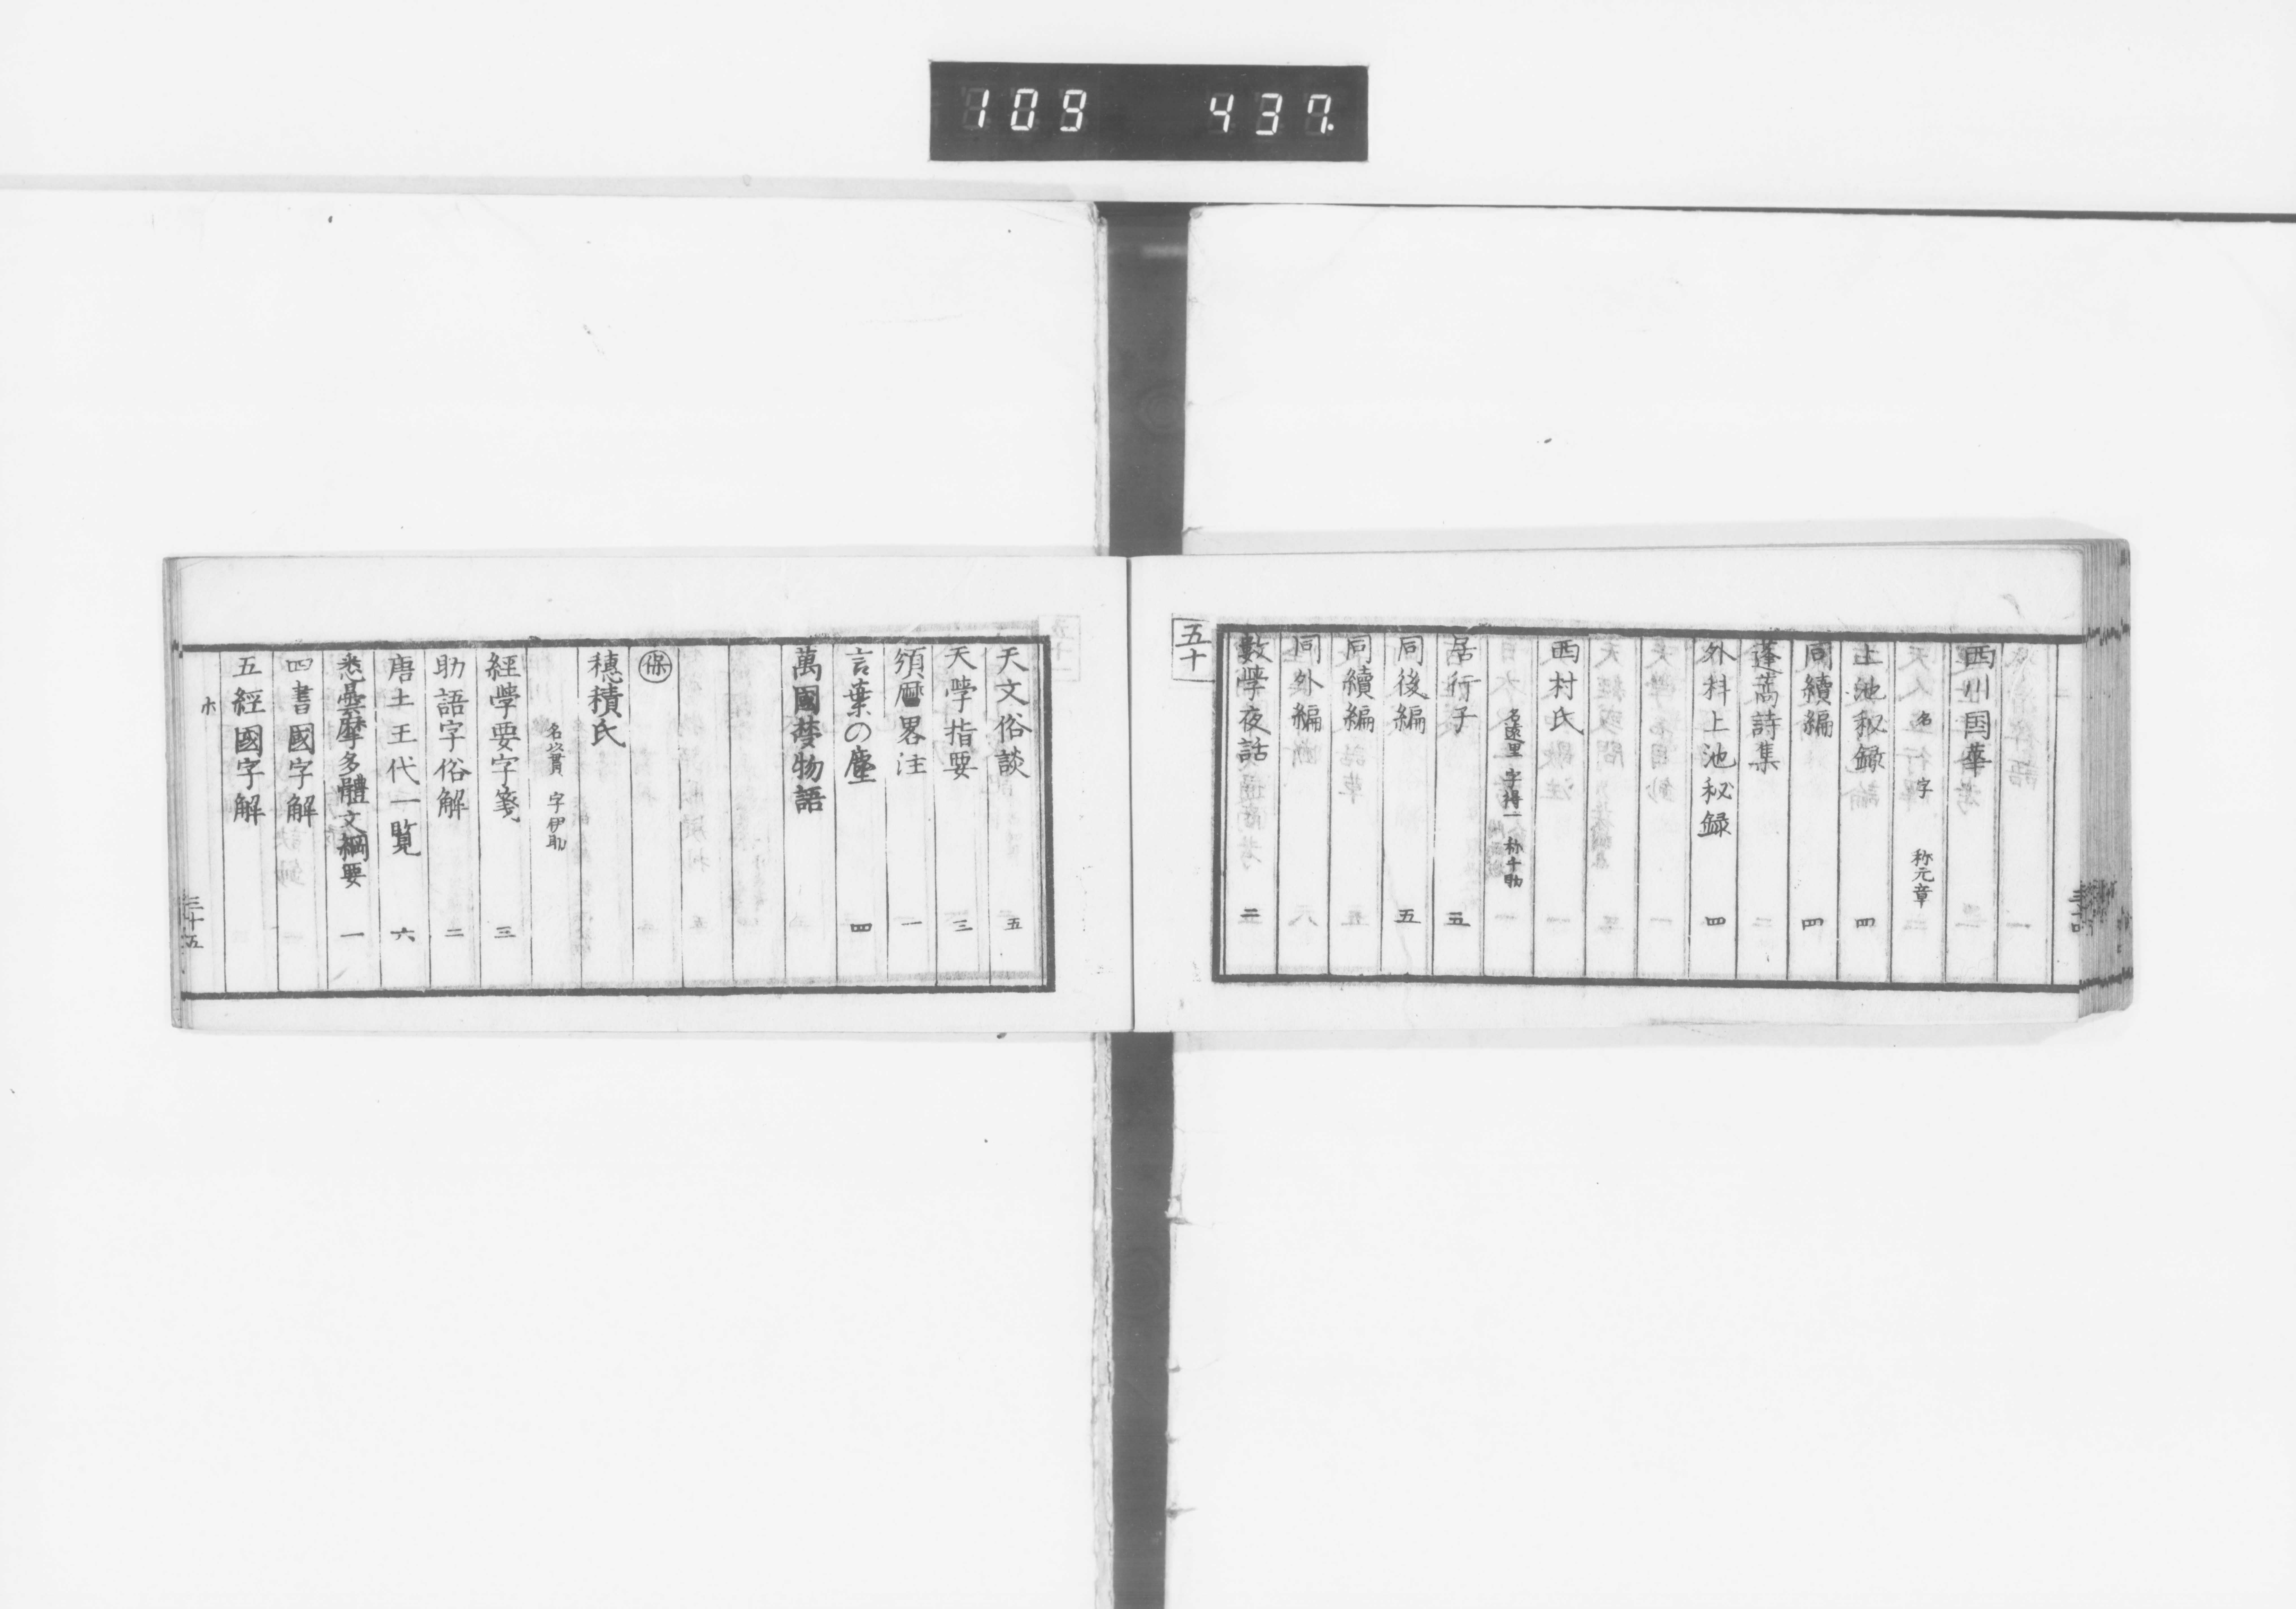 109 437.
西川国華
名 字 称元章
上池秘録 四
同續編 四
蓬蒿詩集
外科上池秘録 四
西村氏
名遠里 字得一 称千助
居行子 五
同後編 五
同續編
同外編
數學夜話 二
五十
天文俗談 五
天學指要 三
頒曆畧注 一
言葉の塵 四
萬國夢物語
保
穂積氏
名以貫 字伊助
經學要字箋 三
助語字俗解 二
唐土王代一覧 六
悉曇摩多體文綱要 一
四書國字解
五經國字解
ホ 三十五